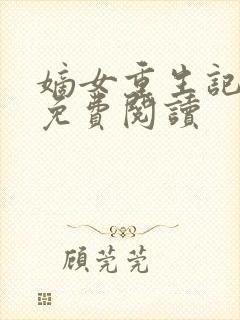 嫡女重生記
免費閱讀
顧莞莞